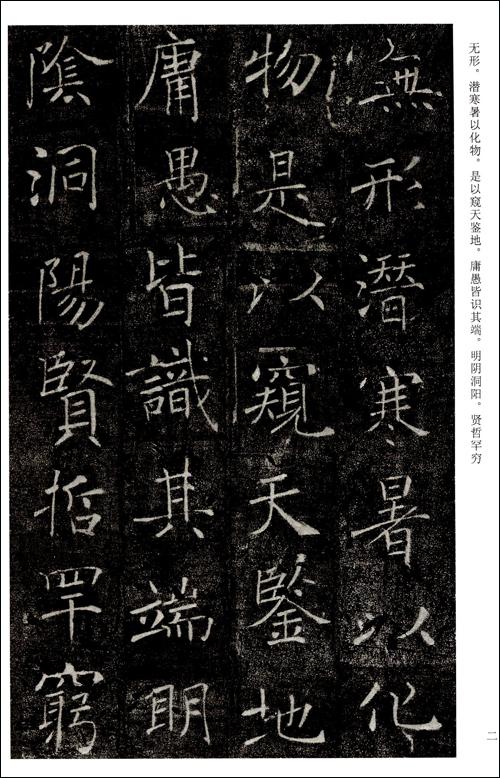 无形。潜寒暑以化物。是以窥天鉴地。庸愚皆识其端。明阴洞阳。贤哲罕穷
無形潛寒暑以化
物是以窺天鑒地
庸愚皆識其端明
陰洞陽賢哲罕窮
二